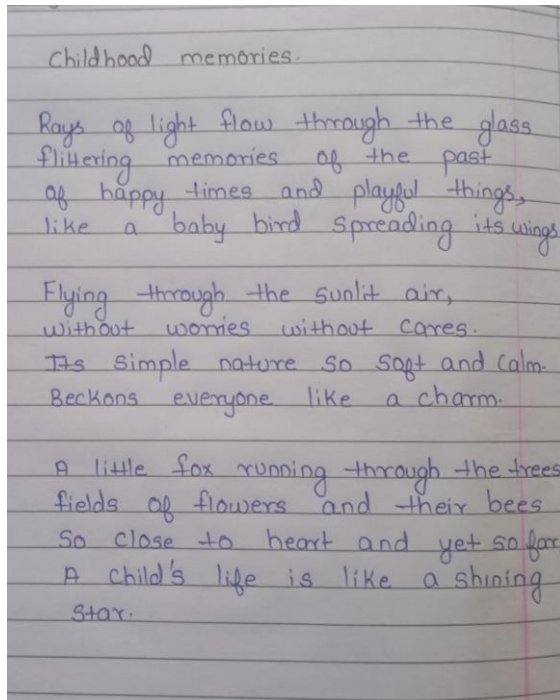 Childhood memories.
Rays of light flow through the glass
flittering memories of the past
of happy times and playful things,
like a baby bird spreading its wings
Flying through the sunlit air,
without worries without cares.
Its simple nature so soft and calm.
Beckons everyone like a charm.
A little fox running through the trees
fields of flowers and their bees
So close to heart and yet so far
A child's life is like a shining
star.